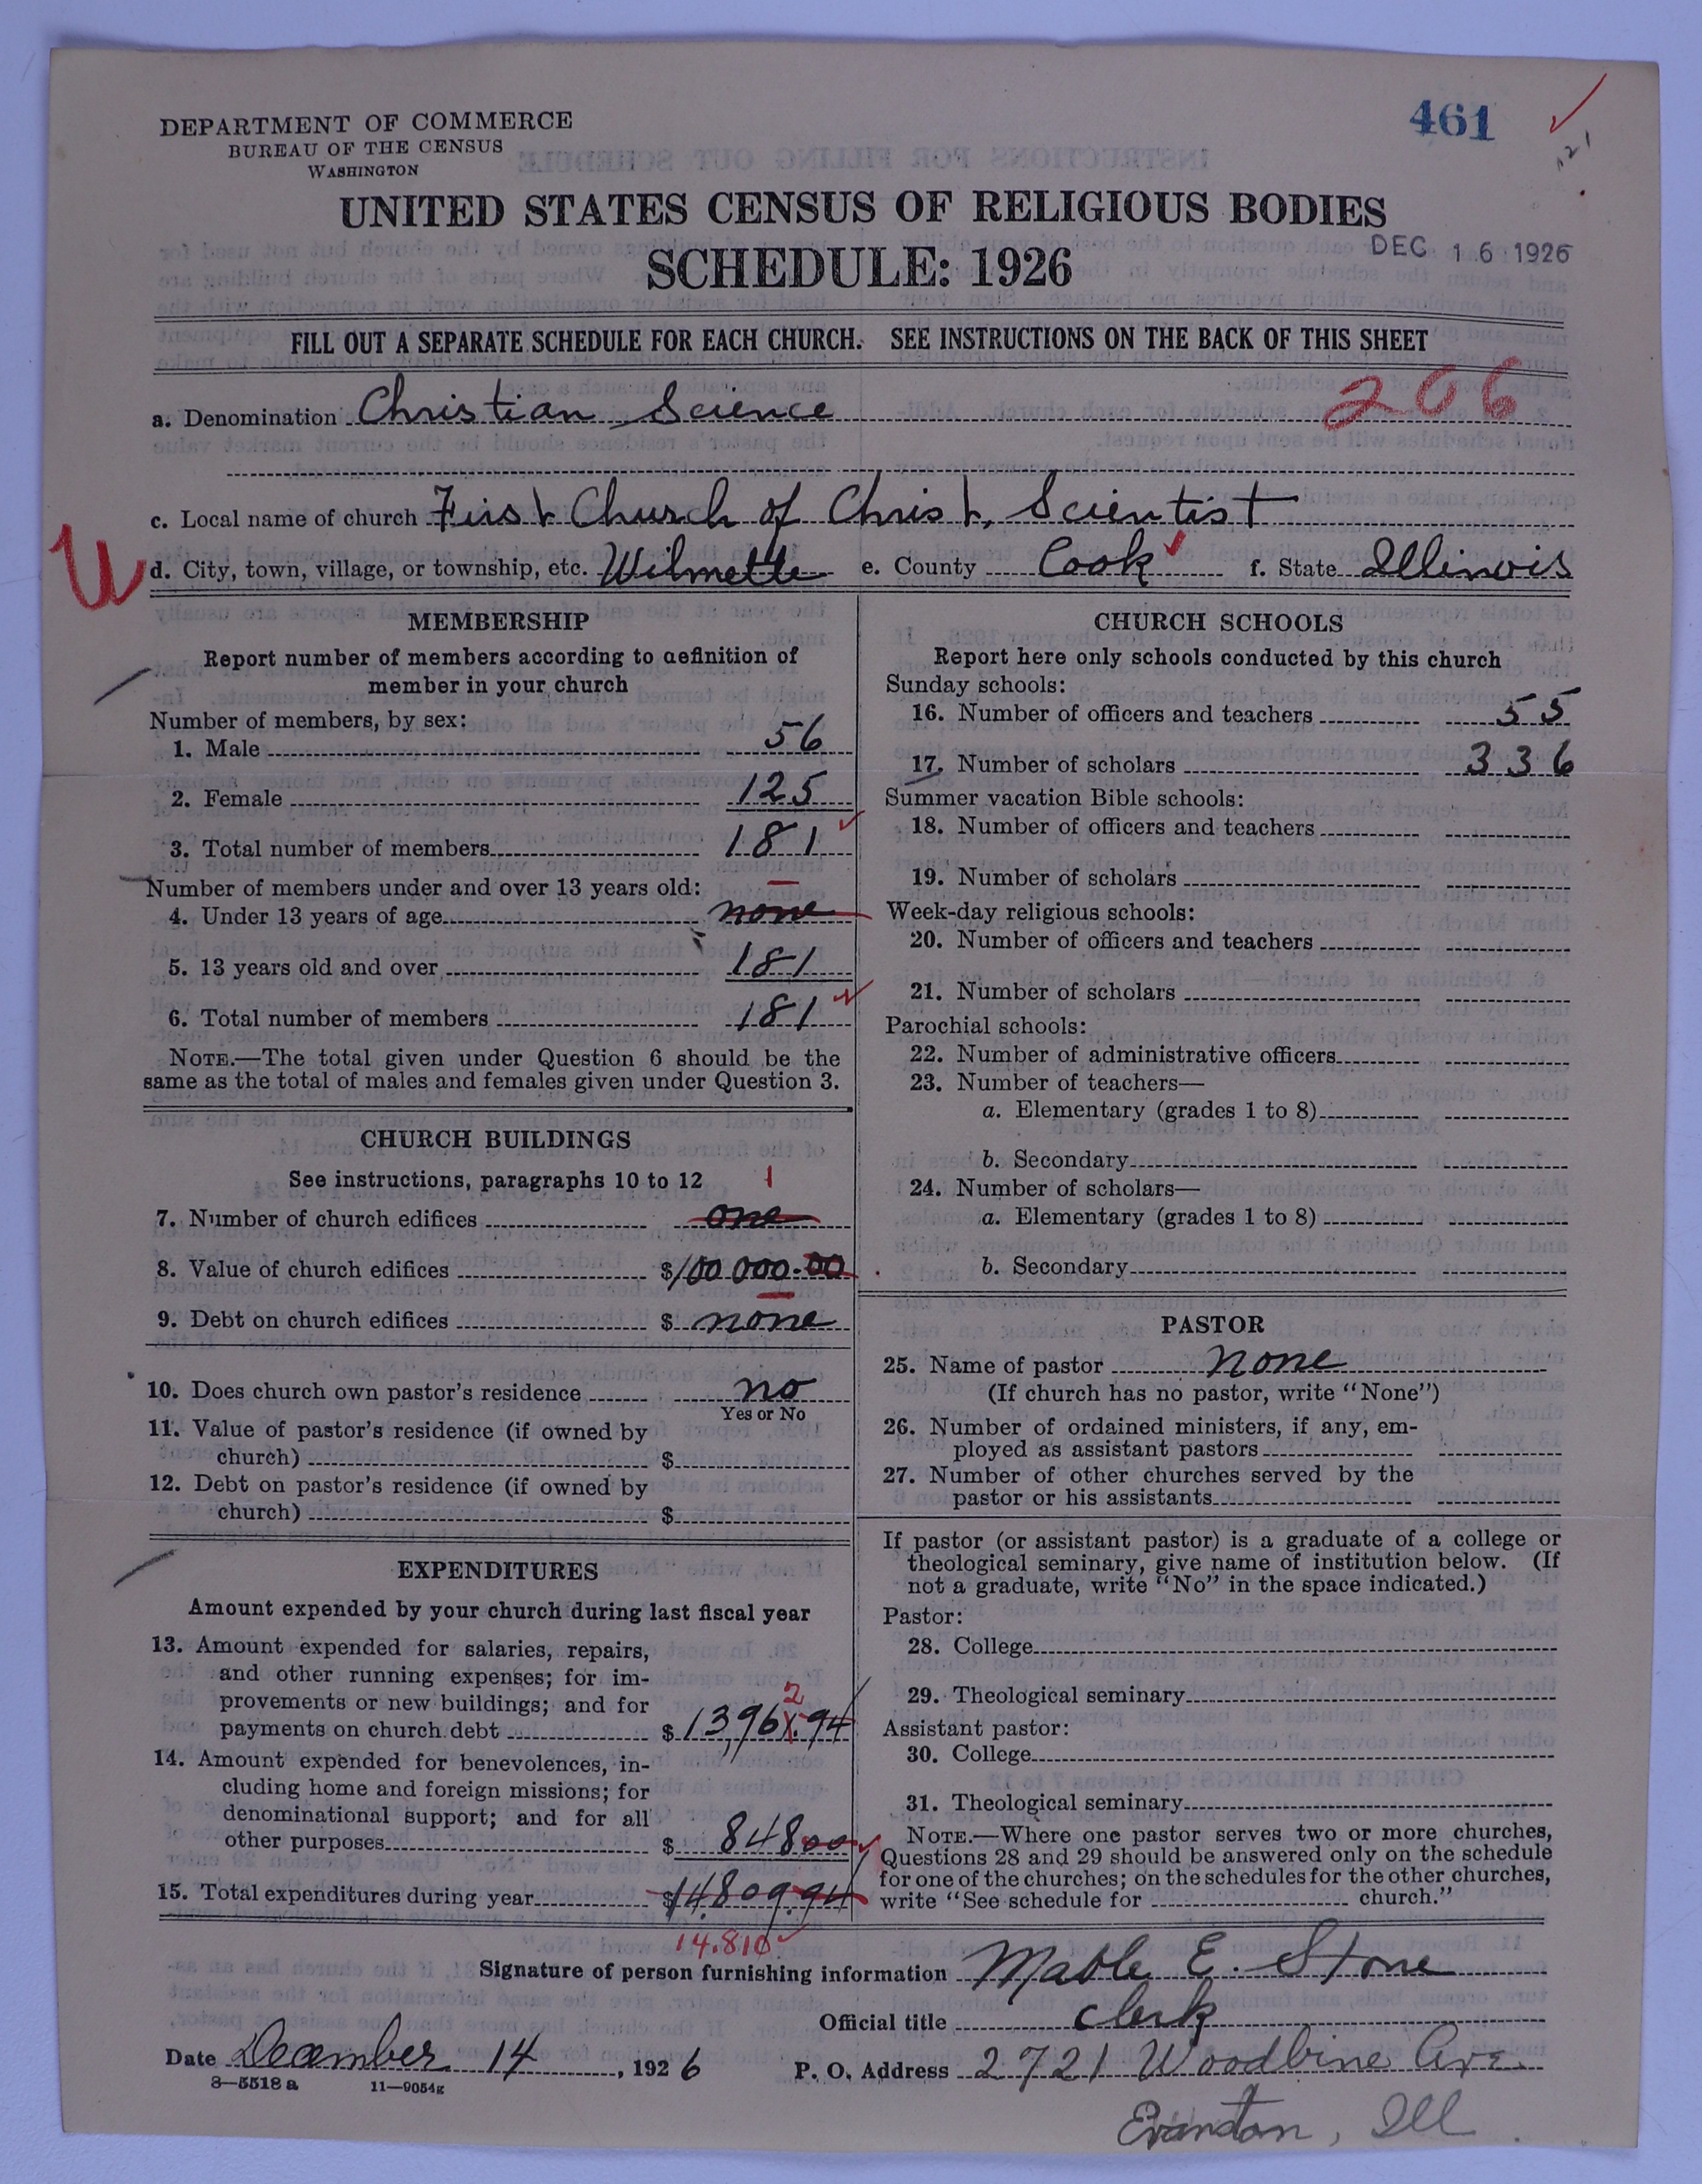 461
DEPARTMENT OF COMMERCE
BUREAU OF THE CENSUS
WASHINGTON
UNITED STATES CENSUS OF RELIGIOUS BODIES
SCHEDULE: 1926
DEC 16 1926
FILL OUT A SEPARATE SCHEDULE FOR EACH CHURCH. SEE INSTRUCTIONS ON THE BACK OF THIS SHEET
206
a. Denomination Christian Science
c. Local name of church First Church of Christ, Scientist
U
d. City, town, village, or township, etc. Wilmette e. County Cook f. State Illinois
MEMBERSHIP
Report number of members according to definition of
member in your church
Number of members, by sex:
1. Male 56
2. Female 125
3. Total number of members 181
Number of members under and over 13 years old:
4. Under 13 years of age none
5. 13 years old and over 181
6. Total number of members 181
NOTE.—The total given under Question 6 should be the
same as the total of males and females given under Question 3.
CHURCH BUILDINGS
See instructions, paragraphs 10 to 12
1
7. Number of church edifices one
8. Value of church edifices $100 000.00
9. Debt on church edifices $ none
10. Does church own pastor's residence no
Yes or No
11. Value of pastor's residence (if owned by
church) $
12. Debt on pastor's residence (if owned by
church) $
EXPENDITURES
Amount expended by your church during last fiscal year
13. Amount expended for salaries, repairs,
and other running expenses; for im-
provements or new buildings; and for
2
payments on church debt $13,961.94
14. Amount expended for benevolences, in-
cluding home and foreign missions; for
denominational support; and for all
other purposes $ 848 00
15. Total expenditures during year $14,809.94
14.810
CHURCH SCHOOLS
Report here only schools conducted by this church
Sunday schools:
16. Number of officers and teachers 55
17. Number of scholars 336
Summer vacation Bible schools:
18. Number of officers and teachers
19. Number of scholars
Week-day religious schools:
20. Number of officers and teachers
21. Number of scholars
Parochial schools:
22. Number of administrative officers
23. Number of teachers—
a. Elementary (grades 1 to 8)
b. Secondary
24. Number of scholars—
a. Elementary (grades 1 to 8)
b. Secondary
PASTOR
25. Name of pastor none
(If church has no pastor, write "None")
26. Number of ordained ministers, if any, em-
ployed as assistant pastors
27. Number of other churches served by the
pastor or his assistants
If pastor (or assistant pastor) is a graduate of a college or
theological seminary, give name of institution below. (If
not a graduate, write "No" in the space indicated.)
Pastor:
28. College
29. Theological seminary
Assistant pastor:
30. College
31. Theological seminary
NOTE.—Where one pastor serves two or more churches,
Questions 28 and 29 should be answered only on the schedule
for one of the churches; on the schedules for the other churches,
write "See schedule for church."
Signature of person furnishing information Mable E. Stone
Official title clerk
Date December 14, 1926 P. O. Address 2721 Woodbine Ave.
8—5518 a 11—9054g
Evanston, Ill.